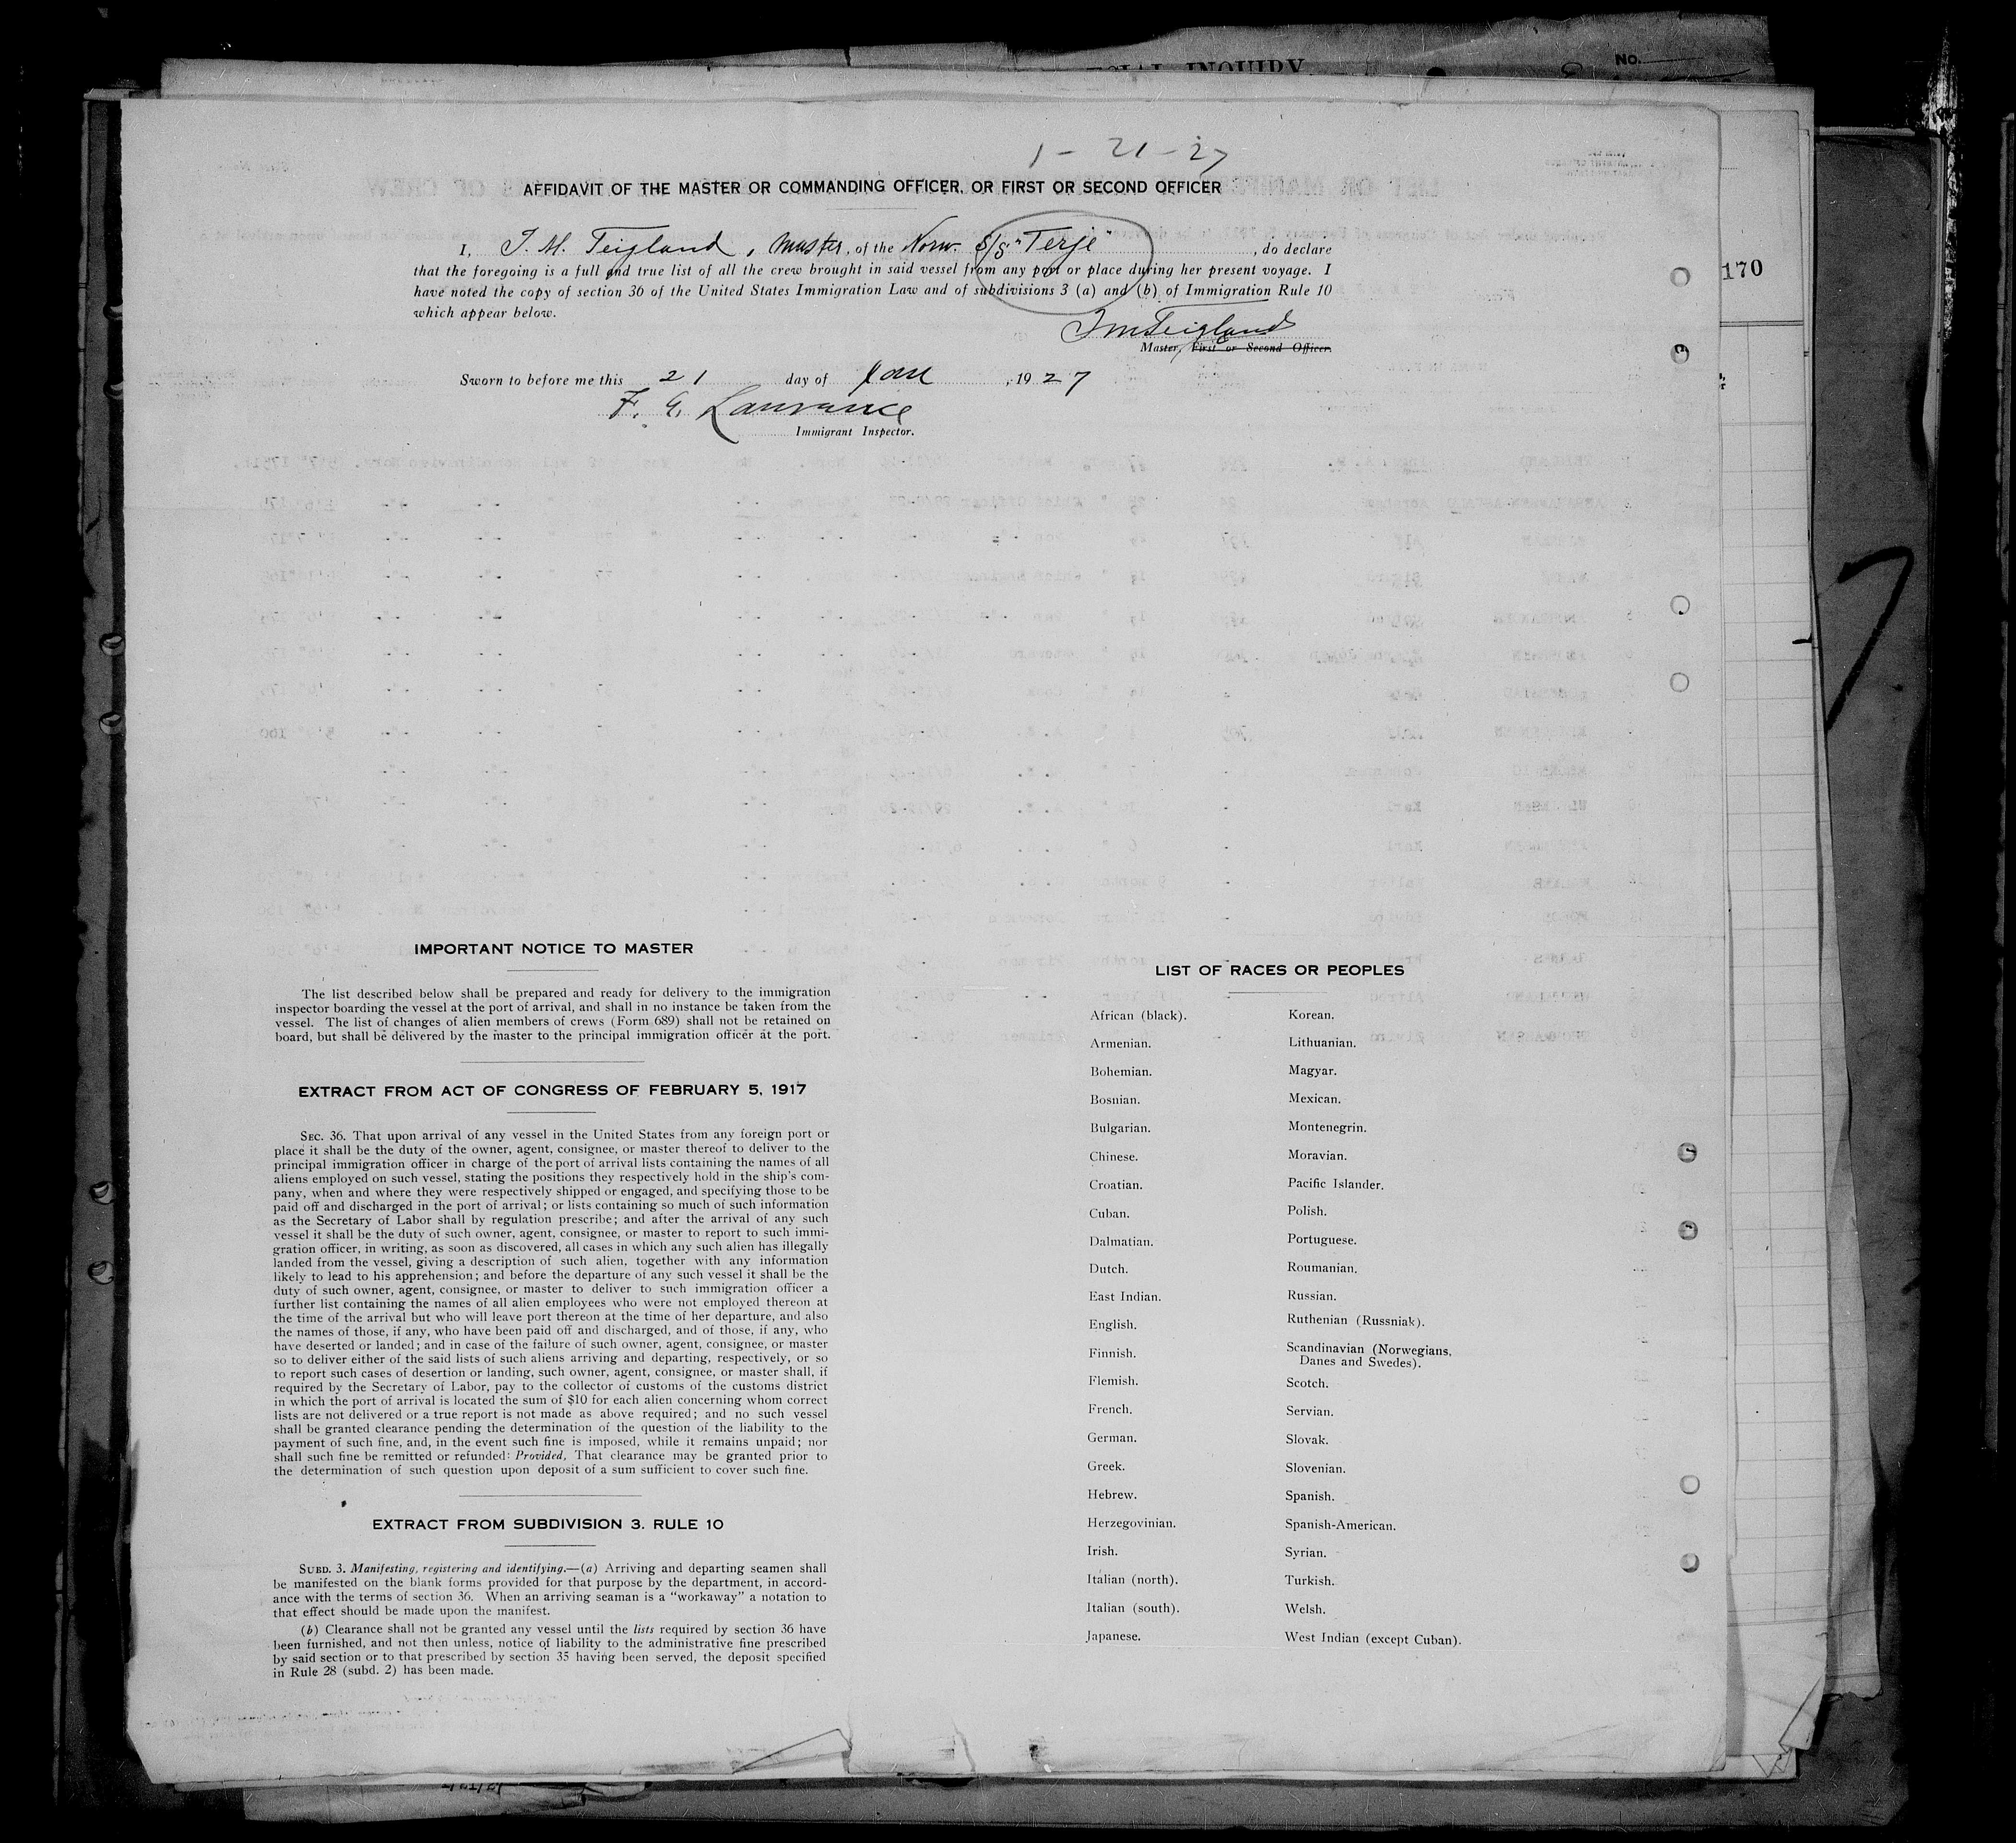 CIAL INQUIRY
NO.
170
1-21-27
AFFIDAVIT OF THE MASTER OR COMMANDING OFFICER, OR FIRST OR SECOND OFFICER
I, T. M. Teigland, Master, of the Norw. S/S "Terje", do declare
that the foregoing is a full and true list of all the crew brought in said vessel from any port or place during her present voyage. I
have noted the copy of section 36 of the United States Immigration Law and of subdivisions 3 (a) and (b) of Immigration Rule 10
which appear below.
TMTeigland
Master, First or Second Officer.
Sworn to before me this 21 day of Jan, 1927
F. G. Lawrance
Immigrant Inspector.
IMPORTANT NOTICE TO MASTER
The list described below shall be prepared and ready for delivery to the immigration
inspector boarding the vessel at the port of arrival, and shall in no instance be taken from the
vessel. The list of changes of alien members of crews (Form 689) shall not be retained on
board, but shall be delivered by the master to the principal immigration officer at the port.
EXTRACT FROM ACT OF CONGRESS OF FEBRUARY 5, 1917
SEC. 36. That upon arrival of any vessel in the United States from any foreign port or
place it shall be the duty of the owner, agent, consignee, or master thereof to deliver to the
principal immigration officer in charge of the port of arrival lists containing the names of all
aliens employed on such vessel, stating the positions they respectively hold in the ship's com-
pany, when and where they were respectively shipped or engaged, and specifying those to be
paid off and discharged in the port of arrival; or lists containing so much of such information
as the Secretary of Labor shall by regulation prescribe; and after the arrival of any such
vessel it shall be the duty of such owner, agent, consignee, or master to report to such immi-
gration officer, in writing, as soon as discovered, all cases in which any such alien has illegally
landed from the vessel, giving a description of such alien, together with any information
likely to lead to his apprehension; and before the departure of any such vessel it shall be the
duty of such owner, agent, consignee, or master to deliver to such immigration officer a
further list containing the names of all alien employees who were not employed thereon at
the time of the arrival but who will leave port thereon at the time of her departure, and also
the names of those, if any, who have been paid off and discharged, and of those, if any, who
have deserted or landed; and in case of the failure of such owner, agent, consignee, or master
so to deliver either of the said lists of such aliens arriving and departing, respectively, or so
to report such cases of desertion or landing, such owner, agent, consignee, or master shall, if
required by the Secretary of Labor, pay to the collector of customs of the customs district
in which the port of arrival is located the sum of $10 for each alien concerning whom correct
lists are not delivered or a true report is not made as above required; and no such vessel
shall be granted clearance pending the determination of the question of the liability to the
payment of such fine, and, in the event such fine is imposed, while it remains unpaid; nor
shall such fine be remitted or refunded: Provided, That clearance may be granted prior to
the determination of such question upon deposit of a sum sufficient to cover such fine.
EXTRACT FROM SUBDIVISION 3. RULE 10
SUBD. 3. Manifesting, registering and identifying.—(a) Arriving and departing seamen shall
be manifested on the blank forms provided for that purpose by the department, in accord-
ance with the terms of section 36. When an arriving seaman is a "workaway" a notation to
that effect should be made upon the manifest.
(b) Clearance shall not be granted any vessel until the lists required by section 36 have
been furnished, and not then unless, notice of liability to the administrative fine prescribed
by said section or to that prescribed by section 35 having been served, the deposit specified
in Rule 28 (subd. 2) has been made.
LIST OF RACES OR PEOPLES
African (black).
Armenian.
Bohemian.
Bosnian.
Bulgarian.
Chinese.
Croatian.
Cuban.
Dalmatian.
Dutch.
East Indian.
English.
Finnish.
Flemish.
French.
German.
Greek.
Hebrew.
Herzegovinian.
Irish.
Italian (north).
Italian (south).
Japanese.
Korean.
Lithuanian.
Magyar.
Mexican.
Montenegrin.
Moravian.
Pacific Islander.
Polish.
Portuguese.
Roumanian.
Russian.
Ruthenian (Russniak).
Scandinavian (Norwegians,
Danes and Swedes).
Scotch.
Servian.
Slovak.
Slovenian.
Spanish.
Spanish-American.
Syrian.
Turkish.
Welsh.
West Indian (except Cuban).